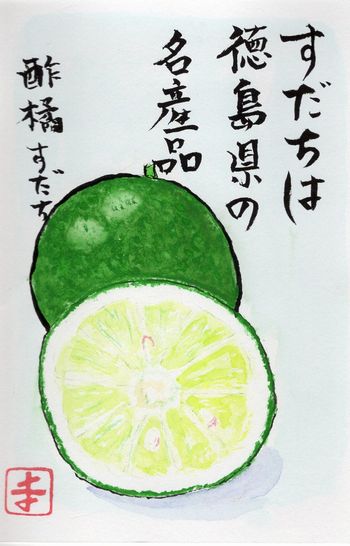 すだちは
徳島県の
名産品
酢橘すだち